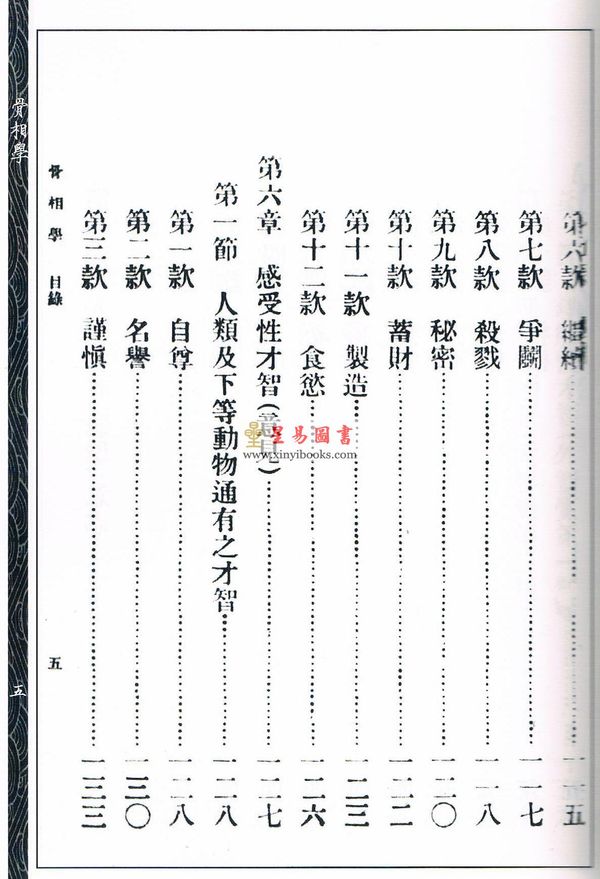 第六款 繼續……一一五
第七款 爭鬭……一一七
第八款 殺戮……一一八
第九款 秘密……一二〇
第十款 蓄財……一二二
第十一款 製造……一二三
第十二款 食慾……一二六
第六章 感受性才智(意見)……一二七
第一節 人類及下等動物通有之才智……一二八
第一款 自尊……一二八
第二款 名譽……一三〇
第三款 謹愼……一三三
骨相學 目錄
五
骨相學
五
星易圖書
www.xinyibooks.com